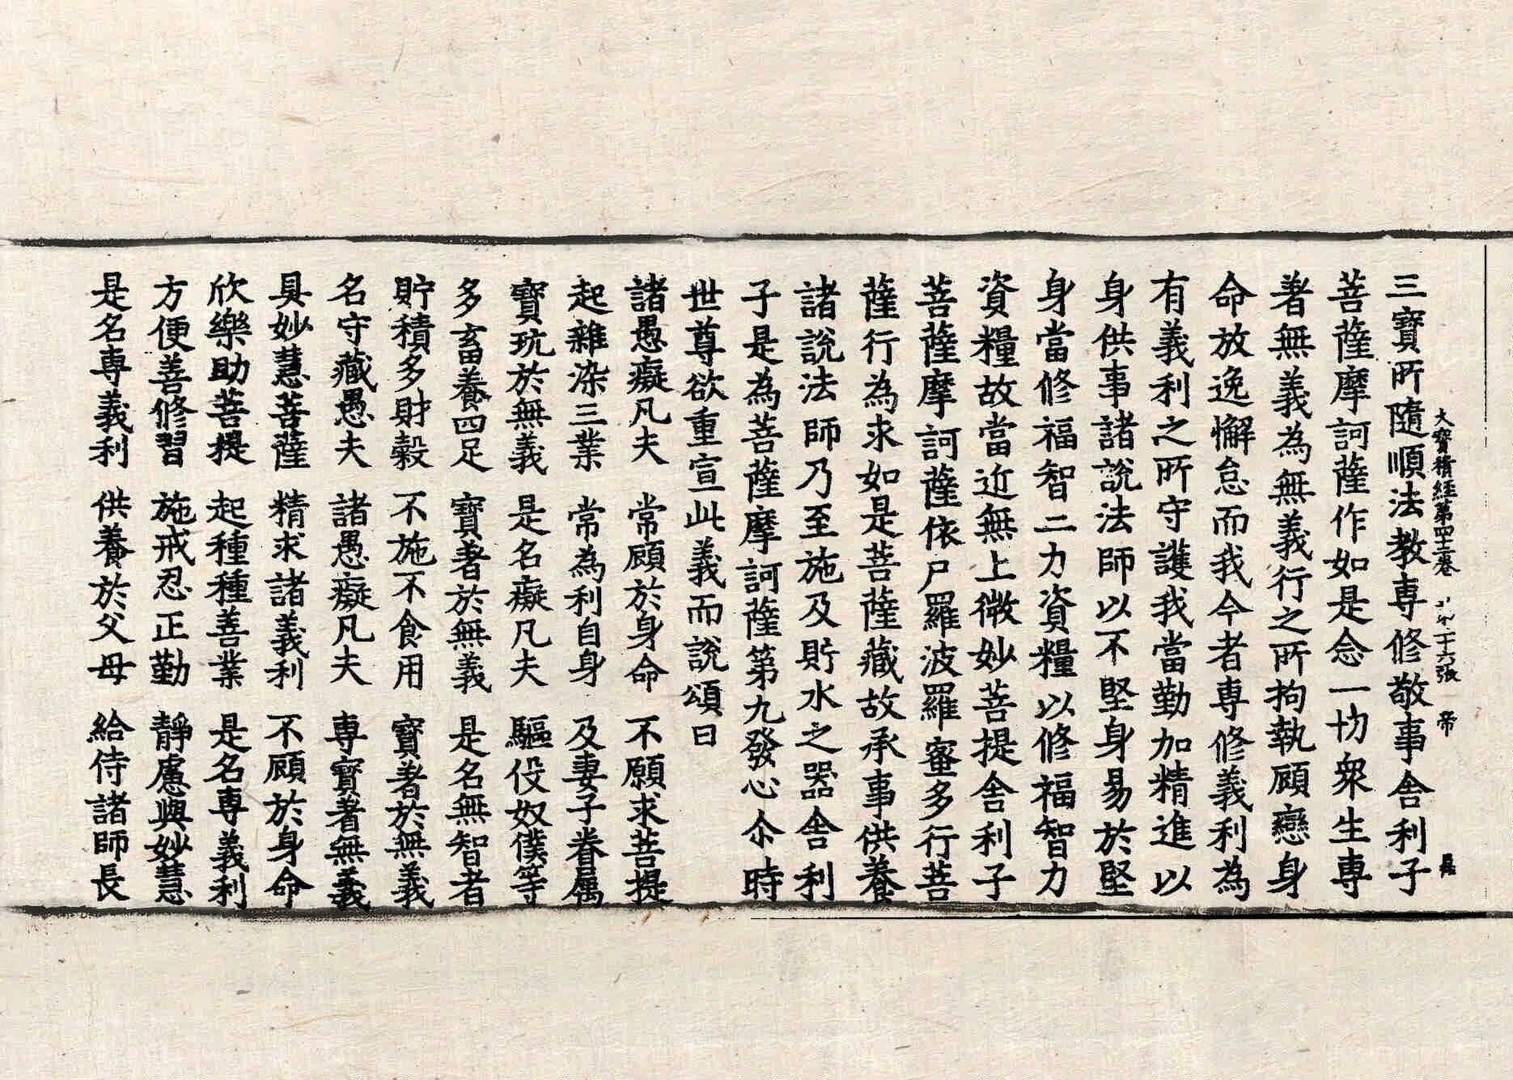 大寶積經第四三卷 第二十六張 帝
三寶所隨順法教専修敬事舎利子
菩薩摩訶薩作如是念一切衆生専
著無義為無義行之所拘執顧戀身
命放逸懈怠而我今者専修義利為
有義利之所守護我當勤加精進以
身供事諸說法師以不堅身易於堅
身當修福智二力資糧以修福智力
資糧故當近無上微妙菩提舎利子
菩薩摩訶薩依尸羅波羅蜜多行菩
薩行為求如是菩薩藏故承事供養
諸說法師乃至施及貯水之器舎利
子是為菩薩摩訶薩第九發心尒時
世尊欲重宣此義而說頌曰
諸愚癡凡夫 常顧於身命 不願求菩提
起雜染三業 常為利自身 及妻子眷属
寶玩於無義 是名癡凡夫 驅役奴僕等
多畜養四足 寶著於無義 是名無智者
貯積多財穀 不施不食用 寶著於無義
名守藏愚夫 諸愚癡凡夫 専寶著無義
具妙慧菩薩 精求諸義利 不顧於身命
欣樂助菩提 起種種善業 是名専義利
方便善修習 施戒忍正勤 靜慮與妙慧
是名専義利 供養於父母 給侍諸師長